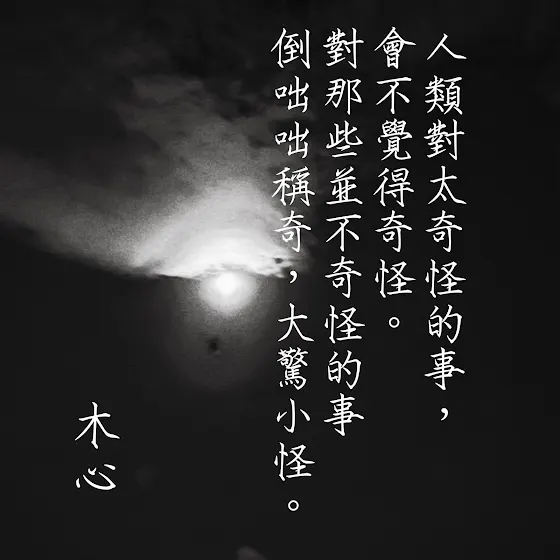 人類對太奇怪的事，
會不覺得奇怪。
對那些並不奇怪的事
倒咄咄稱奇，大驚小怪。
木心